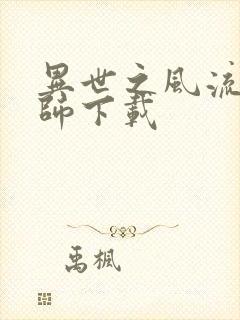 異世之風流
師下載
禹楓